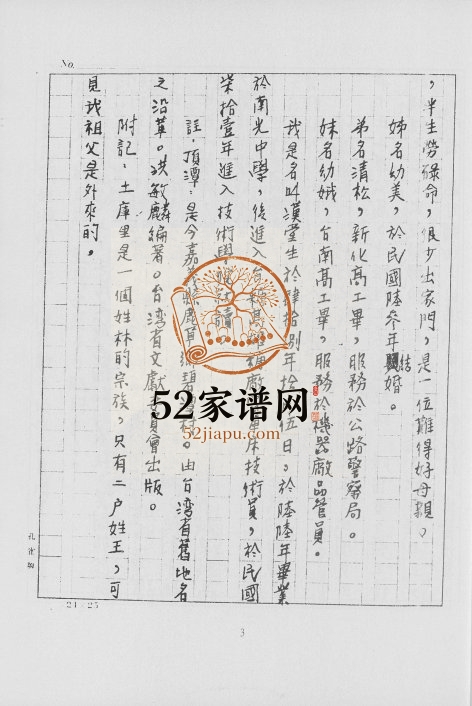 No.
,半生勞碌命,很少出家門,是一位難得好母親。
姊名幼美,於民國陸參年結婚。
弟名清松,新化高工畢,服務於公路警察局。
妹名幼娥,台南高工畢,服務於機器廠品管員。
我是名叫漢堂生於肆拾捌年拾 伍日,於陸陸年畢業
於南光中學,後進入 床技術員,於民國
柒拾壹年進入技術學 讀
註,頂潭:是今嘉義 處 鄉碧 村。由台湾省舊地名
之沿革。洪敏麟編著。台湾省文獻委員會出版。
附記,土庫里是一個姓林的宗族,只有二户姓王,可
見我祖父是外來的。
孔雀牌
24×25
3
52家谱网
52jiapu.com